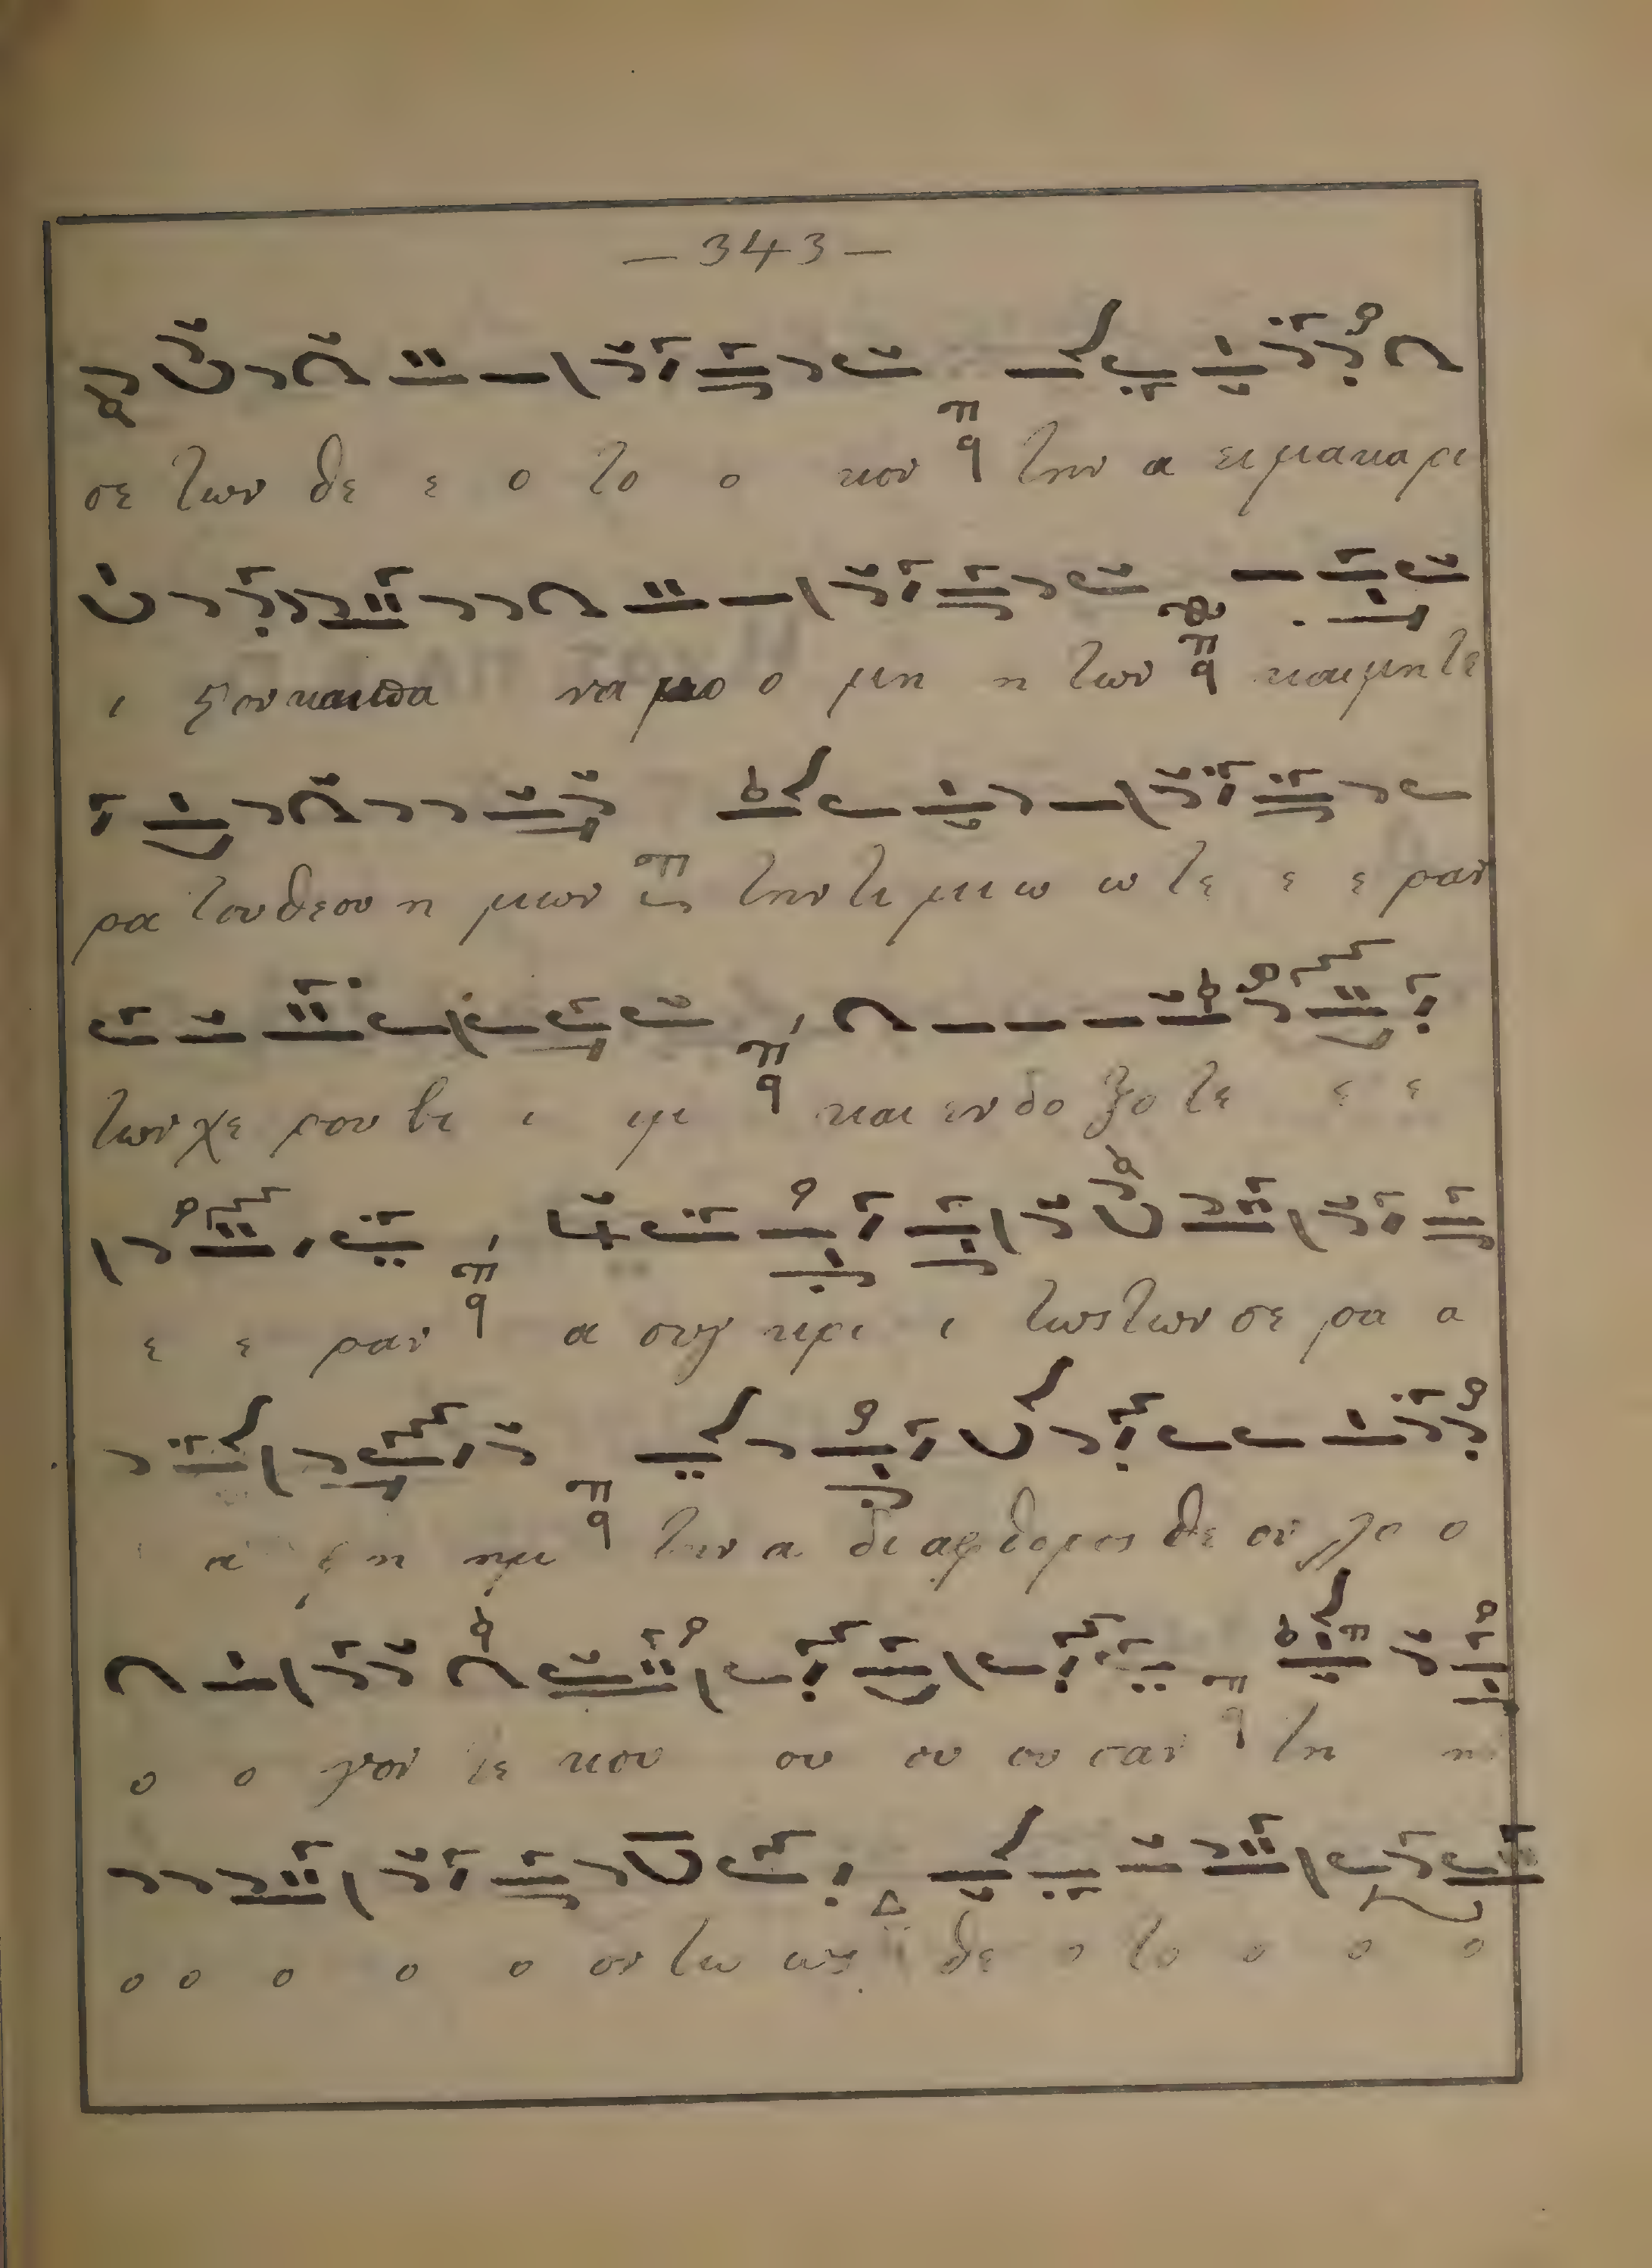 — 343 —
σε των θε ε ο το ο κον την α ει μα κα ρι
ι ϛον και πα να μω ο μη η τον και μη τε
ρα του θεου η μων την τι μι ω ω τε ε ε ραν
των χε ρου βι ι ιμ και εν δο ξο τε ε ε
ε ε ραν α συγ κρι ι τως των σε ρα α
α φη ημ την α δι αφ θορως θε ον λο ο
ο ο γον τε κου ου ου ου σαν τη η
ο ο ο ο ο ον τω ως θε ο το ο ο ο